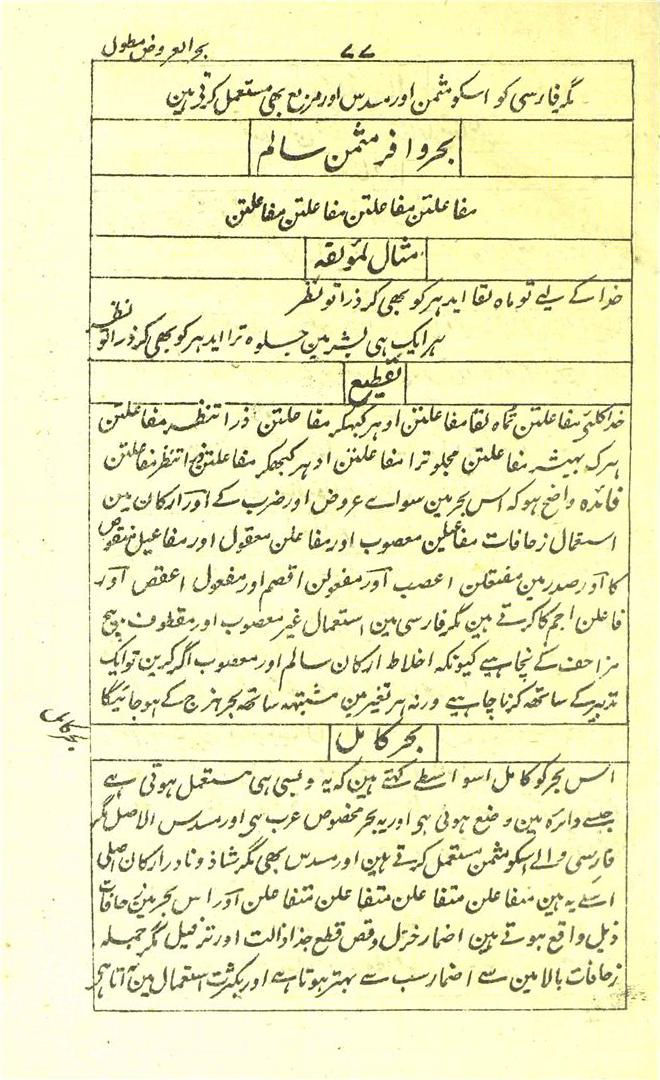 ۷۷
بحر العروض مطول
مگر فارسی کو اسکو مثمن اور مسدس اور مربع بھی مستعمل کرتی ہین
بحر وافر مثمن سالم
مفاعلتن مفاعلتن مفاعلتن مفاعلتن
مثال لمؤلفہ
خدا کے لیے تو ماہ لقا ایدہر کو بھی کر ذرا تو نظر
ہر ایک ہی بشر مین جلوہ ترا ایدہر کو بھی کر ذرا تو نظر
تقطیع
خدا کلئی مفاعلتن تماہ لقا مفاعلتن اوہر کبھکر مفاعلتن ذرا تنظر مفاعلتن
ہر کہ بہیشر مفاعلتن مجلو ترا مفاعلتن ادہر کبھکر مفاعلتن ذرا تنظر مفاعلتن
فائدہ واضح ہو کہ اس بحر مین سواے عروض اور ضرب کے اور ارکان مین
استعمال زحافات مفاعیلن معصوب اور مفاعلن معقول اور مفاعیل منقوص
کا اور صدر مین مفتعلن اعصب اور مفعولن اقصم اور مفعول اعقص اور
فاعلن اجم کا کرتے ہین مگر فارسی مین استعمال غیر معصوب اور مقطوف ہیچ
مزاحف کے نچاہیے کیونکہ اخلاط ارکان سالم اور معصوب اگر کرین تو ایک
تدبیر کے ساتھ کرنا چاہیے ورنہ ہر تغیر مین مشتبہہ ساتھ بحر ہزج کے ہو جائیگا
بحر کامل
بحر کامل
اس بحر کو کامل اسواسطے کہتے ہین کہ یہ ویسی ہی مستعمل ہوتی ہے
جیسے دائرہ مین وضع ہوئی ہی اور یہ بحر مخصوص عرب ہی اور مسدس الاصل مگر
فارسی والے اسکو مثمن مستعمل کرتے ہین اور مسدس بھی مگر شاذ و نادر ارکان اصلی
اسکے یہ ہین متفاعلن متفاعلن متفاعلن متفاعلن اور اس بحر مین زحافات
ذیل واقع ہوتے ہین اضمار خزل وقص قطع حذذ اذالت اور ترفیل مگر جملہ
زحافات بالا مین سے اضمار سب سے بہتر ہوتا ہے اور بکثرت استعمال مین آتا ہی